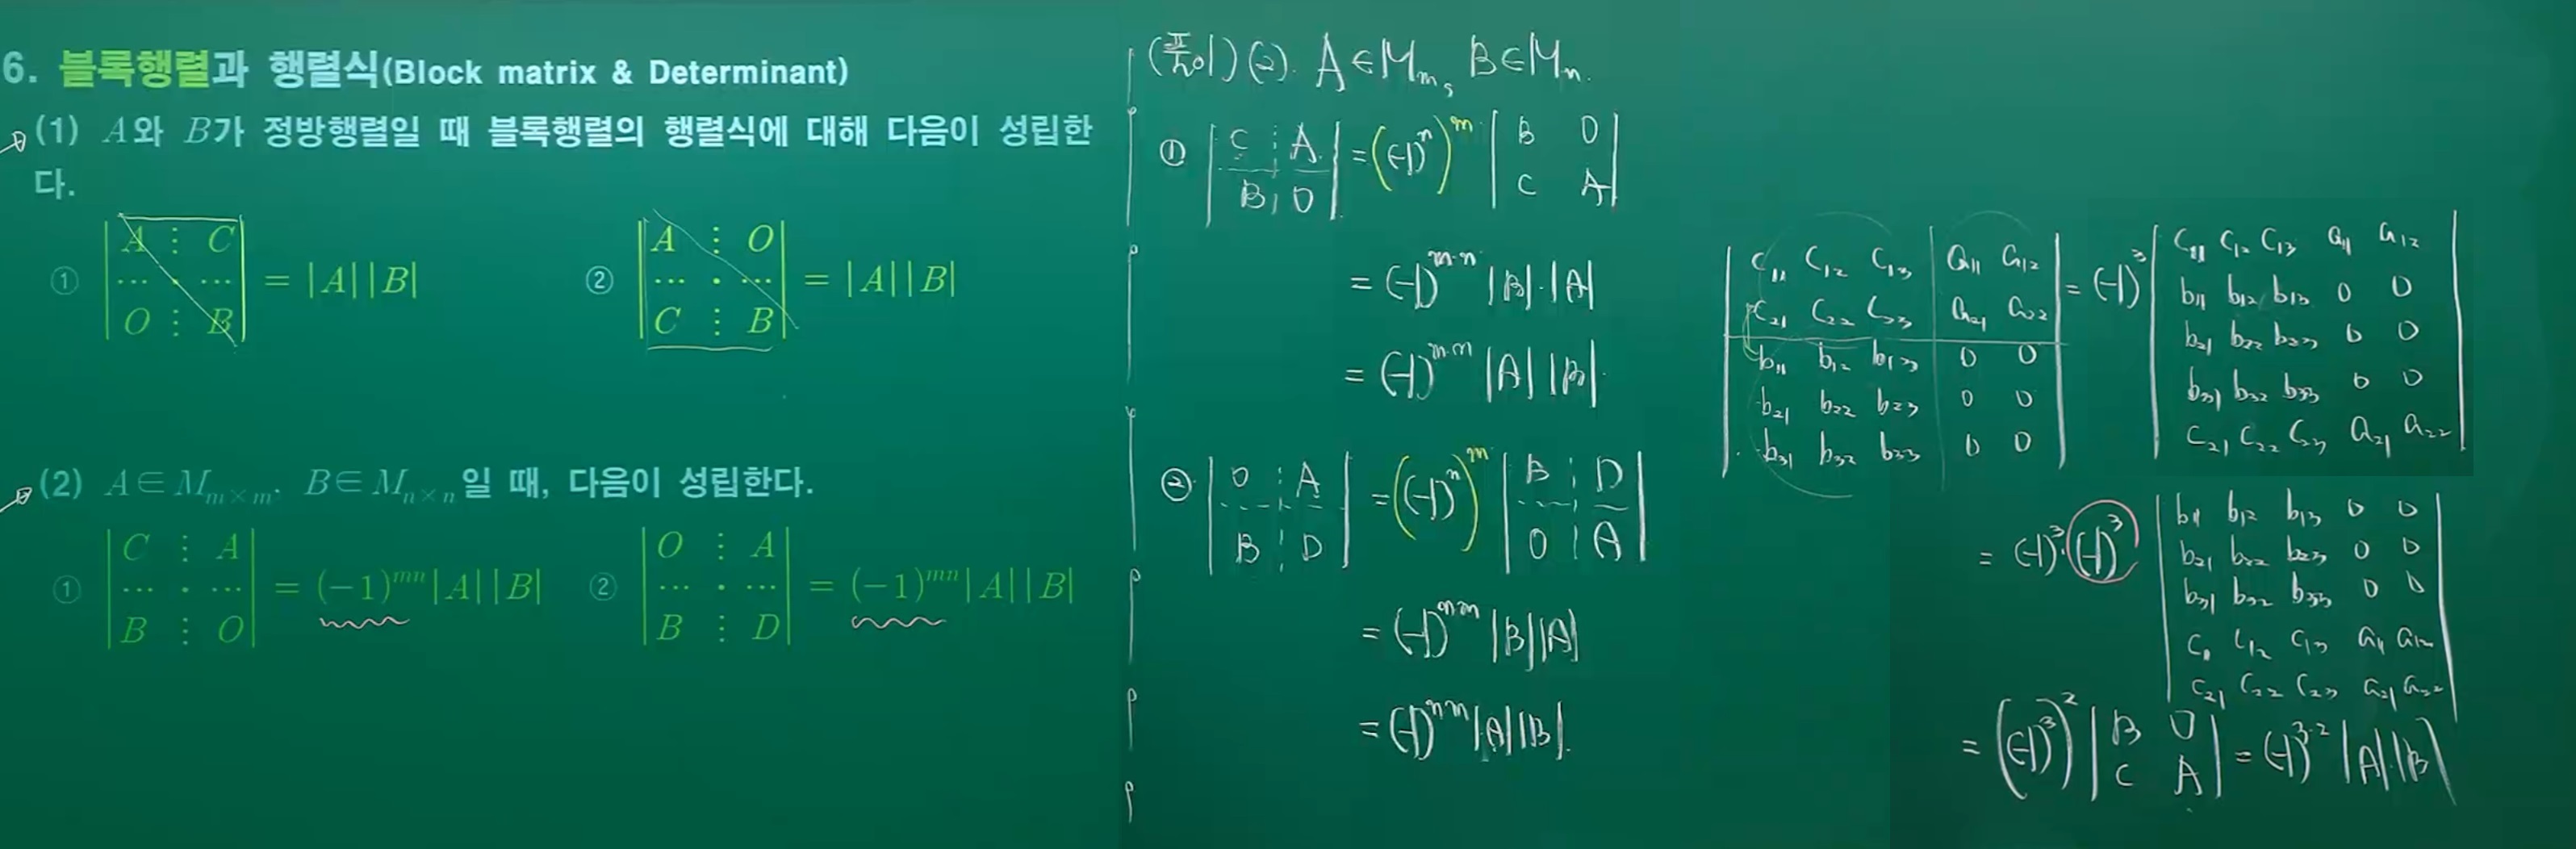 6. 블록행렬과 행렬식(Block matrix & Determinant)
(1) A와 B가 정방행렬일 때 블록행렬의 행렬식에 대해 다음이 성립한
다.
① | A ⋮ C |
| ⋯ · ⋯ | = |A||B|
| O ⋮ B |
② | A ⋮ O |
| ⋯ · ⋯ | = |A||B|
| C ⋮ B |
(2) A∈M_{m×m}, B∈M_{n×n}일 때, 다음이 성립한다.
① | C ⋮ A |
| ⋯ · ⋯ | = (-1)^{mn}|A||B|
| B ⋮ O |
② | O ⋮ A |
| ⋯ · ⋯ | = (-1)^{mn}|A||B|
| B ⋮ D |
(풀이) (2). A∈M_m, B∈M_n.
① | C A | = ((-1)^n)^m | B O |
| B O | | C A |
= (-1)^{m·n} |B|·|A|
= (-1)^{m·n} |A||B|.
② | O A | = ((-1)^n)^m | B D |
| B D | | O A |
= (-1)^{nm} |B||A|
= (-1)^{nm} |A||B|.
| C11 C12 C13 a11 a12 |
| C21 C22 C23 a21 a22 |
| b11 b12 b13 0 0 |
| b21 b22 b23 0 0 |
| b31 b32 b33 0 0 |
= (-1)^3 | C11 C12 C13 a11 a12 |
| b11 b12 b13 0 0 |
| b21 b22 b23 0 0 |
| b31 b32 b33 0 0 |
| C21 C22 C23 a21 a22 |
= (-1)^3·(-1)^3 | b11 b12 b13 0 0 |
| b21 b22 b23 0 0 |
| b31 b32 b33 0 0 |
| C11 C12 C13 a11 a12 |
| C21 C22 C23 a21 a22 |
= ((-1)^3)^2 | B O | = (-1)^{3·2} |A||B|
| C A |